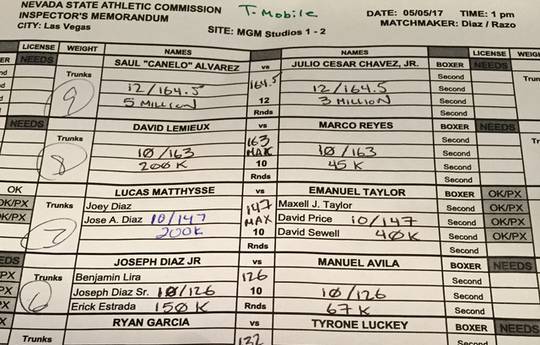 NEVADA STATE ATHLETIC COMMISSION T-Mobile DATE: 05/05/17 TIME: 1 pm
INSPECTOR'S MEMORANDUM MATCHMAKER: Diaz / Razo
CITY: Las Vegas SITE: MGM Studios 1 - 2
LICENSE WEIGHT NAMES NAMES LICENSE WEIGHT
ER NEEDS SAUL "CANELO" ALVAREZ vs JULIO CESAR CHAVEZ, JR. BOXER NEEDS
nd Trunks 12/164.5 164.5 12/164.5 Second Trun
nd 9 5 MILLION 12 3 MILLION Second
nd Rnds Second
NEEDS DAVID LEMIEUX vs MARCO REYES BOXER NEEDS
Trunks 10/163 163 MAX 10/163 Second Tru
8 200K 10 45K Second
Rnds Second
OK LUCAS MATTHYSSE vs EMANUEL TAYLOR BOXER OK/PX
OK/PX Trunks Joey Diaz 147 Maxell J. Taylor Second OK/PX
OK/PX 7 Jose A. Diaz 10/147 MAX David Price 10/147 Second OK/PX
200K 10 David Sewell 40K Second OK/PX
Rnds Second
NEEDS JOSEPH DIAZ JR vs MANUEL AVILA BOXER NEEDS
PX Trunks Benjamin Lira 126 Second
PX 6 Joseph Diaz Sr. 10/126 10 10/126 Second
PX Erick Estrada 150K Rnds 67K Second
RYAN GARCIA vs TYRONE LUCKEY BOXER NEEDS
Trunks 132 Second